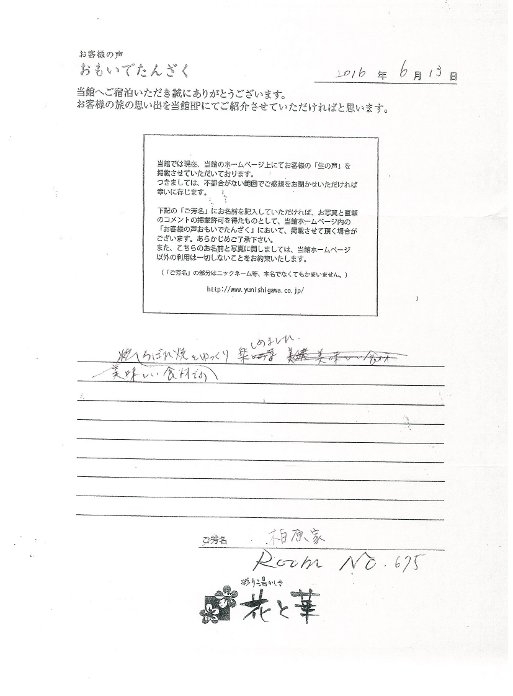 お客様の声
おもいでたんざく
2016 年 6 月 13 日
当館へご宿泊いただき誠にありがとうございます。
お客様の旅の思い出を当館HPにてご紹介させていただければと思います。
当館では現在、当館のホームページ上にてお客様の「生の声」を
掲載させていただいております。
つきましては、不都合がない範囲でご感想をお聞かせいただければ
幸いに存じます。
下記の「ご芳名」にお名前を記入していただければ、お写真と直筆
のコメントの掲載許可を得たものとして、当館ホームページ内の
「お客様の声おもいでたんざく」において、掲載させて頂く場合が
ございます。あらかじめご了承下さい。
また、こちらのお名前と写真に関しましては、当館ホームページ
以外の利用は一切しないことをお約束いたします。
(「ご芳名」の部分はニックネーム等、本名でなくてもかまいません。)
http://www.yunishigawa.co.jp/
しめました
焼をゆっくり 楽
美味しい食材
ご芳名 柏原家
Room No. 675
花と華